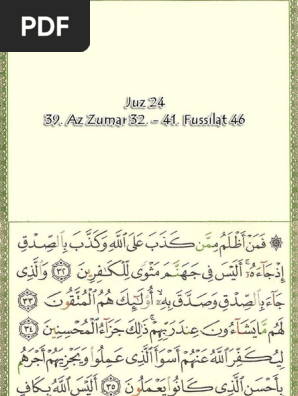 PDF
Juz 24
39. Az Zumar 32 – 41. Fussilat 46
۞ فَمَنْ أَظْلَمُ مِمَّن كَذَبَ عَلَى ٱللَّهِ وَكَذَّبَ بِٱلصِّدْقِ
إِذْ جَآءَهُۥٓ ۚ أَلَيْسَ فِى جَهَنَّمَ مَثْوًى لِّلْكَـٰفِرِينَ ٣٢ وَٱلَّذِى
جَآءَ بِٱلصِّدْقِ وَصَدَّقَ بِهِۦٓ ۙ أُو۟لَـٰٓئِكَ هُمُ ٱلْمُتَّقُونَ ٣٣
لَهُم مَّا يَشَآءُونَ عِندَ رَبِّهِمْ ۚ ذَٰلِكَ جَزَآءُ ٱلْمُحْسِنِينَ ٣٤
لِيُكَفِّرَ ٱللَّهُ عَنْهُمْ أَسْوَأَ ٱلَّذِى عَمِلُوا۟ وَيَجْزِيَهُمْ أَجْرَهُم
بِأَحْسَنِ ٱلَّذِى كَانُوا۟ يَعْمَلُونَ ٣٥ أَلَيْسَ ٱللَّهُ بِكَافٍ